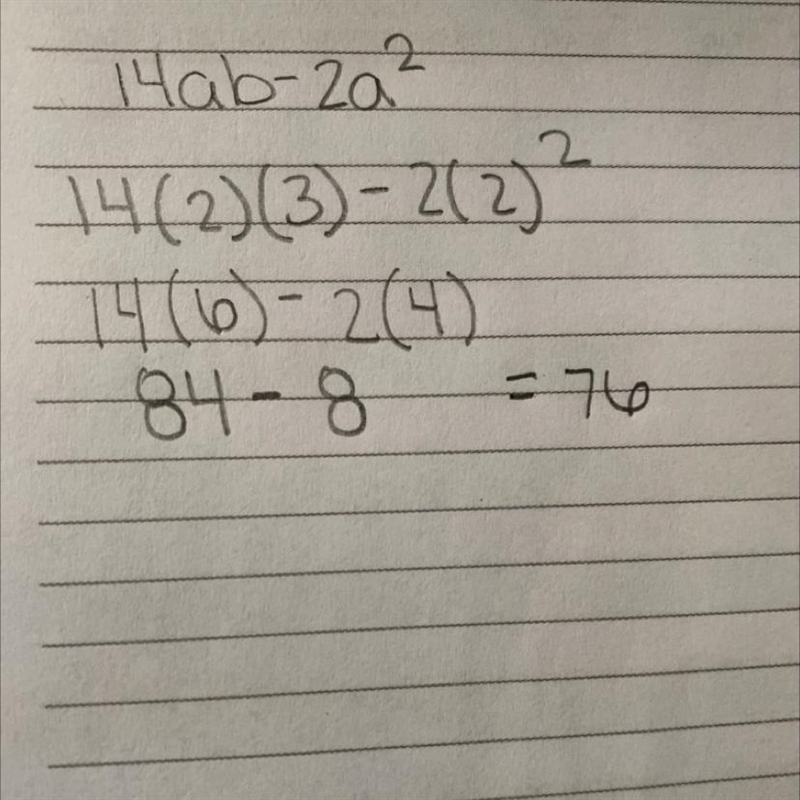 14ab-2a²
14(2)(3)-2(2)²
14(6)-2(4)
84-8 =76